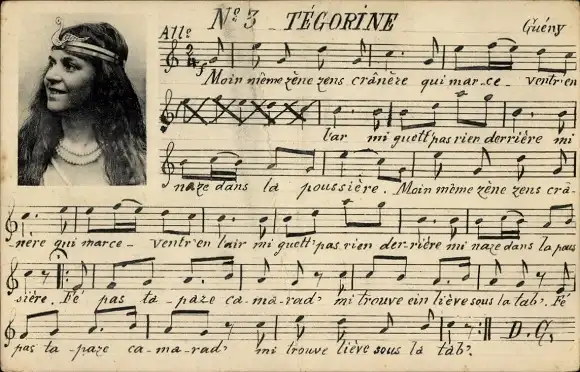 Nº 3 TÉGORINE Guény
Allº
2/4 f
Moin même zène zens crânère qui mar-ce-ventr'en
l'air mi guett' pas rien derrière mi
naze dans la poussière. Moin même zène zens crâ-
nère qui marce-ventr'en l'air mi guett' pas rien der-rière mi naze dans la pous
sière. Fé pas ta-paze ca-ma-rad' mi trouve ein lième sous la tab'. Fé
D.C.
pas ta-paze ca-ma-rad' mi trouve lième sous la tab'.